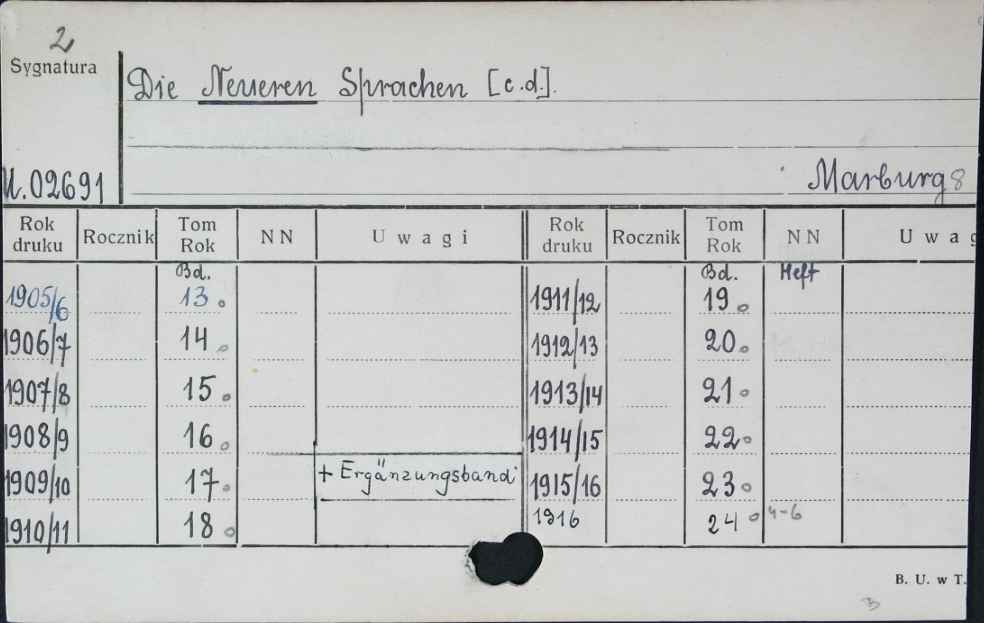 2
Sygnatura
Die Neueren Sprachen [c.d.].
U.02691
Marburg 8
Rok druku Rocznik Tom Rok NN Uwagi Rok druku Rocznik Tom Rok NN Uwag
Bd. Bd. Heft
1905/6 13 1911/12 19
1906/7 14 1912/13 20
1907/8 15 1913/14 21
1908/9 16 1914/15 22
1909/10 17 + Ergänzungsband 1915/16 23
1910/11 18 1916 24 4-6
B. U. w T.